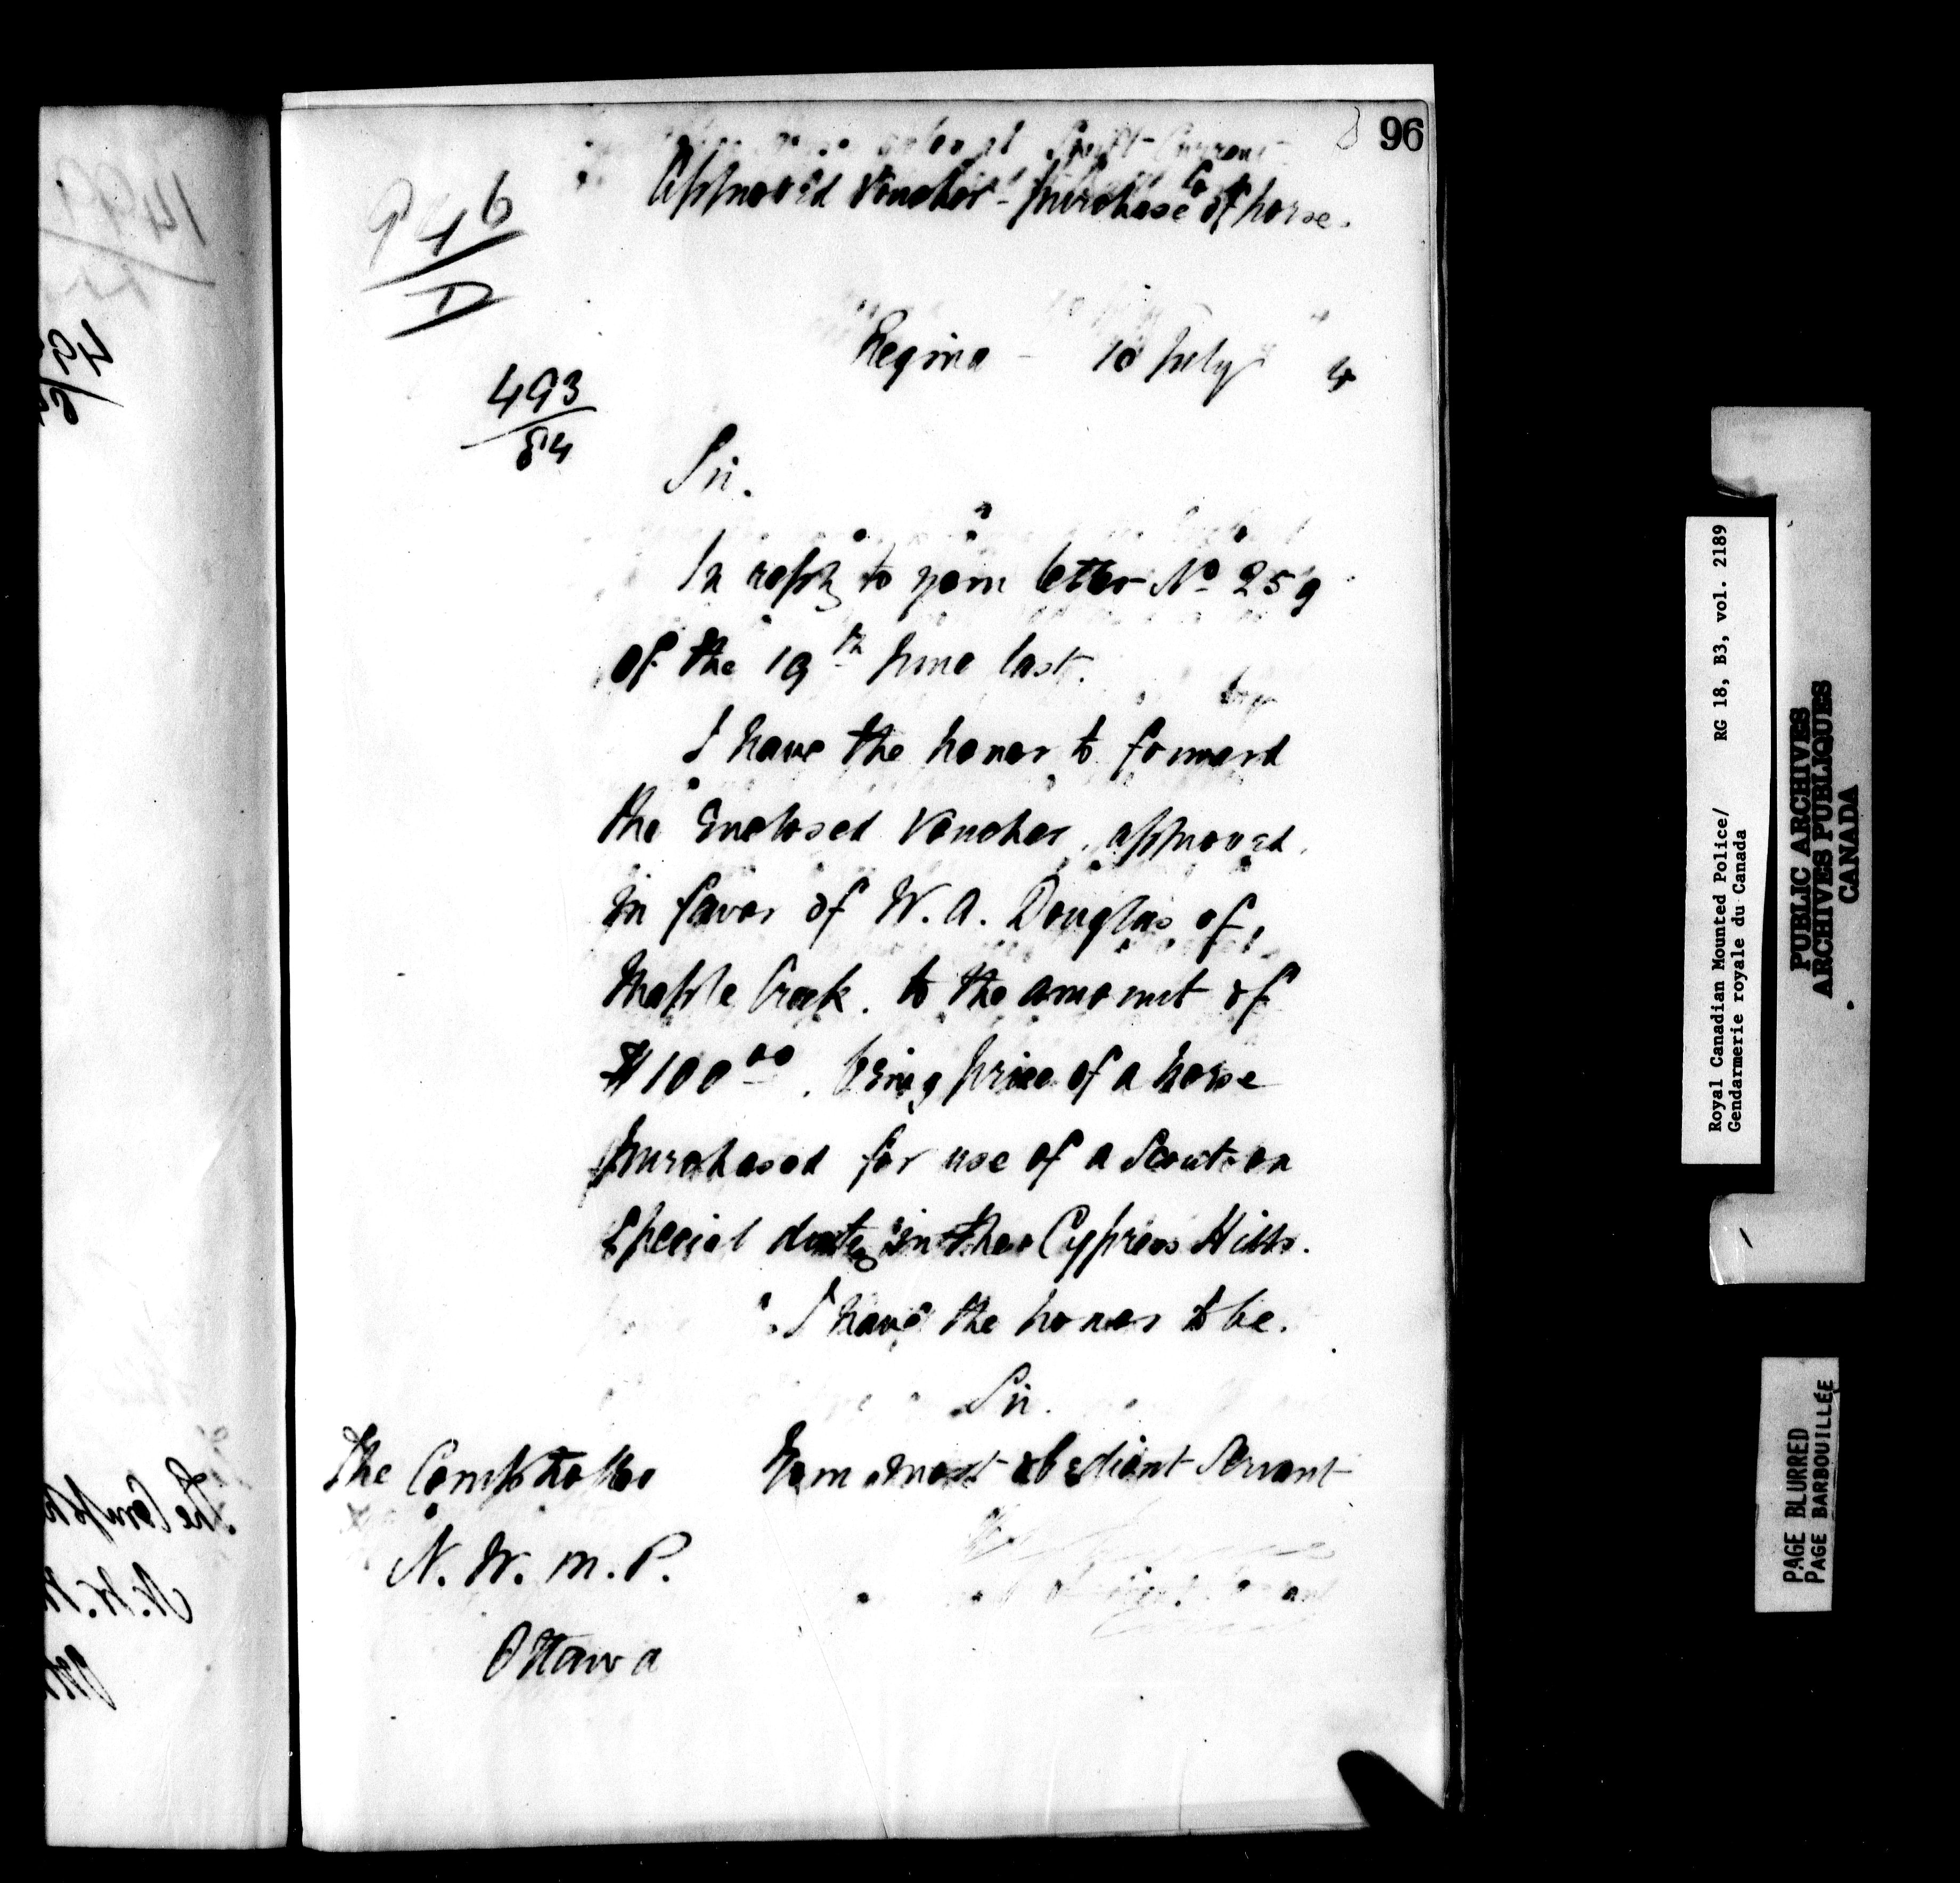 96
Approved Voucher - purchase of horse.
946
D
Regina - 10 July 4
493
84
Sir.
In reply to your letter No 259
of the 19th June last.
I have the honor to forward
the Enclosed Voucher, approved,
in favor of W. A. Douglas of,
Maple Creek. to the amount of
$100 00. being price of a horse
purchased for use of a Scout on
Special duty in the Cypress Hills.
I have the honor to be.
Sir.
The Comptroller
Your most obedient Servant
N. W. M. P.
Ottawa
Royal Canadian Mounted Police/ RG 18, B3, vol. 2189
Gendarmerie royale du Canada
PUBLIC ARCHIVES
ARCHIVES PUBLIQUES
CANADA
PAGE BLURRED
PAGE BARBOUILLÉE